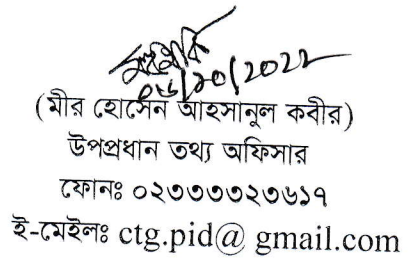 ০৬/১০/2022
(মীর হোসেন আহসানুল কবীর)
উপপ্রধান তথ্য অফিসার
ফোনঃ ০২৩৩৩৩২৩৬১৭
ই-মেইলঃ ctg.pid@ gmail.com